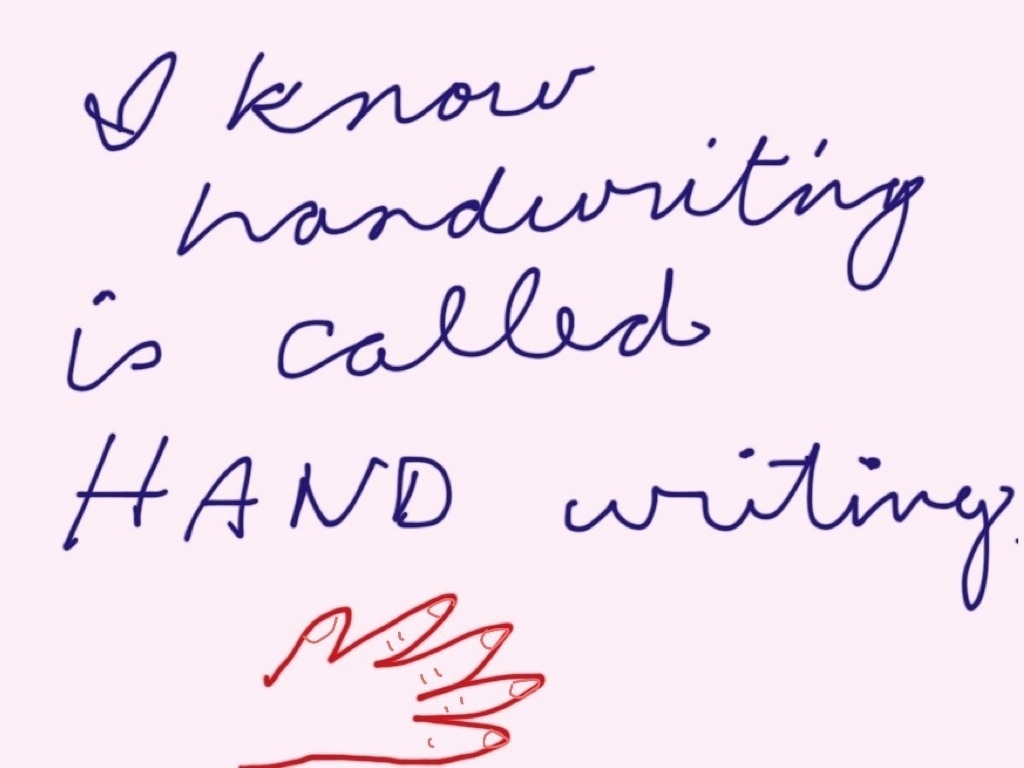 I know
handwriting
is called
HAND writing.